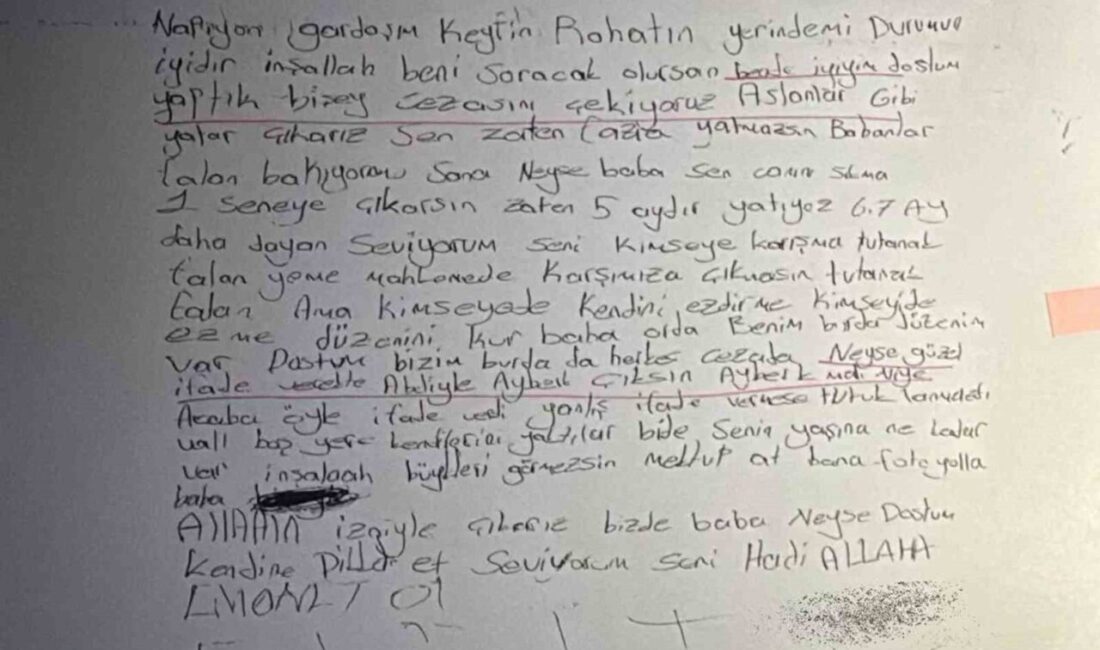 Napıyon gardaşım Keyfin Rohatın yerindemi Durumuv
iyidir inşallah beni Soracak olursan bende iyiyim dostum
yaptık bizey cezasını çekiyoruz Aslanlar Gibi
yatar çıkarız Sen zaten fazla yatmazsın Babanlar
falan bakıyorow Sana Neyse baba sen canın sıkma
1 Seneye çıkarsın zaten 5 aydır yatıyoz 6.7 AY
daha dayan Seviyorum seni Kimseye karışma tutanak
falan yeme mahkemede Karşımıza çıkmasın tutanak
falan Ama Kimseyede Kendini ezdirme Kimseyide
ezme düzenini Kur baba orda Benim burda düzenim
var Dostum bizim burda da herkes cezada Neyse güzel
ifade verelte Abeliyle Ayberk Çıksın Ayberk niye
Acaba öyle ifade verdi yanlış ifade vermese tutuklanmazdı
vall boş yere yattılar bide Senin yaşına ne kadar
var inşalaah büyükleri görmezsin mektup at bana foto yolla
baba
Allahın izniyle çıkarız bizde baba Neyse Dostum
Kendine Dikkat et Seviyorum seni Hadi ALLAHA
EMONET Ol